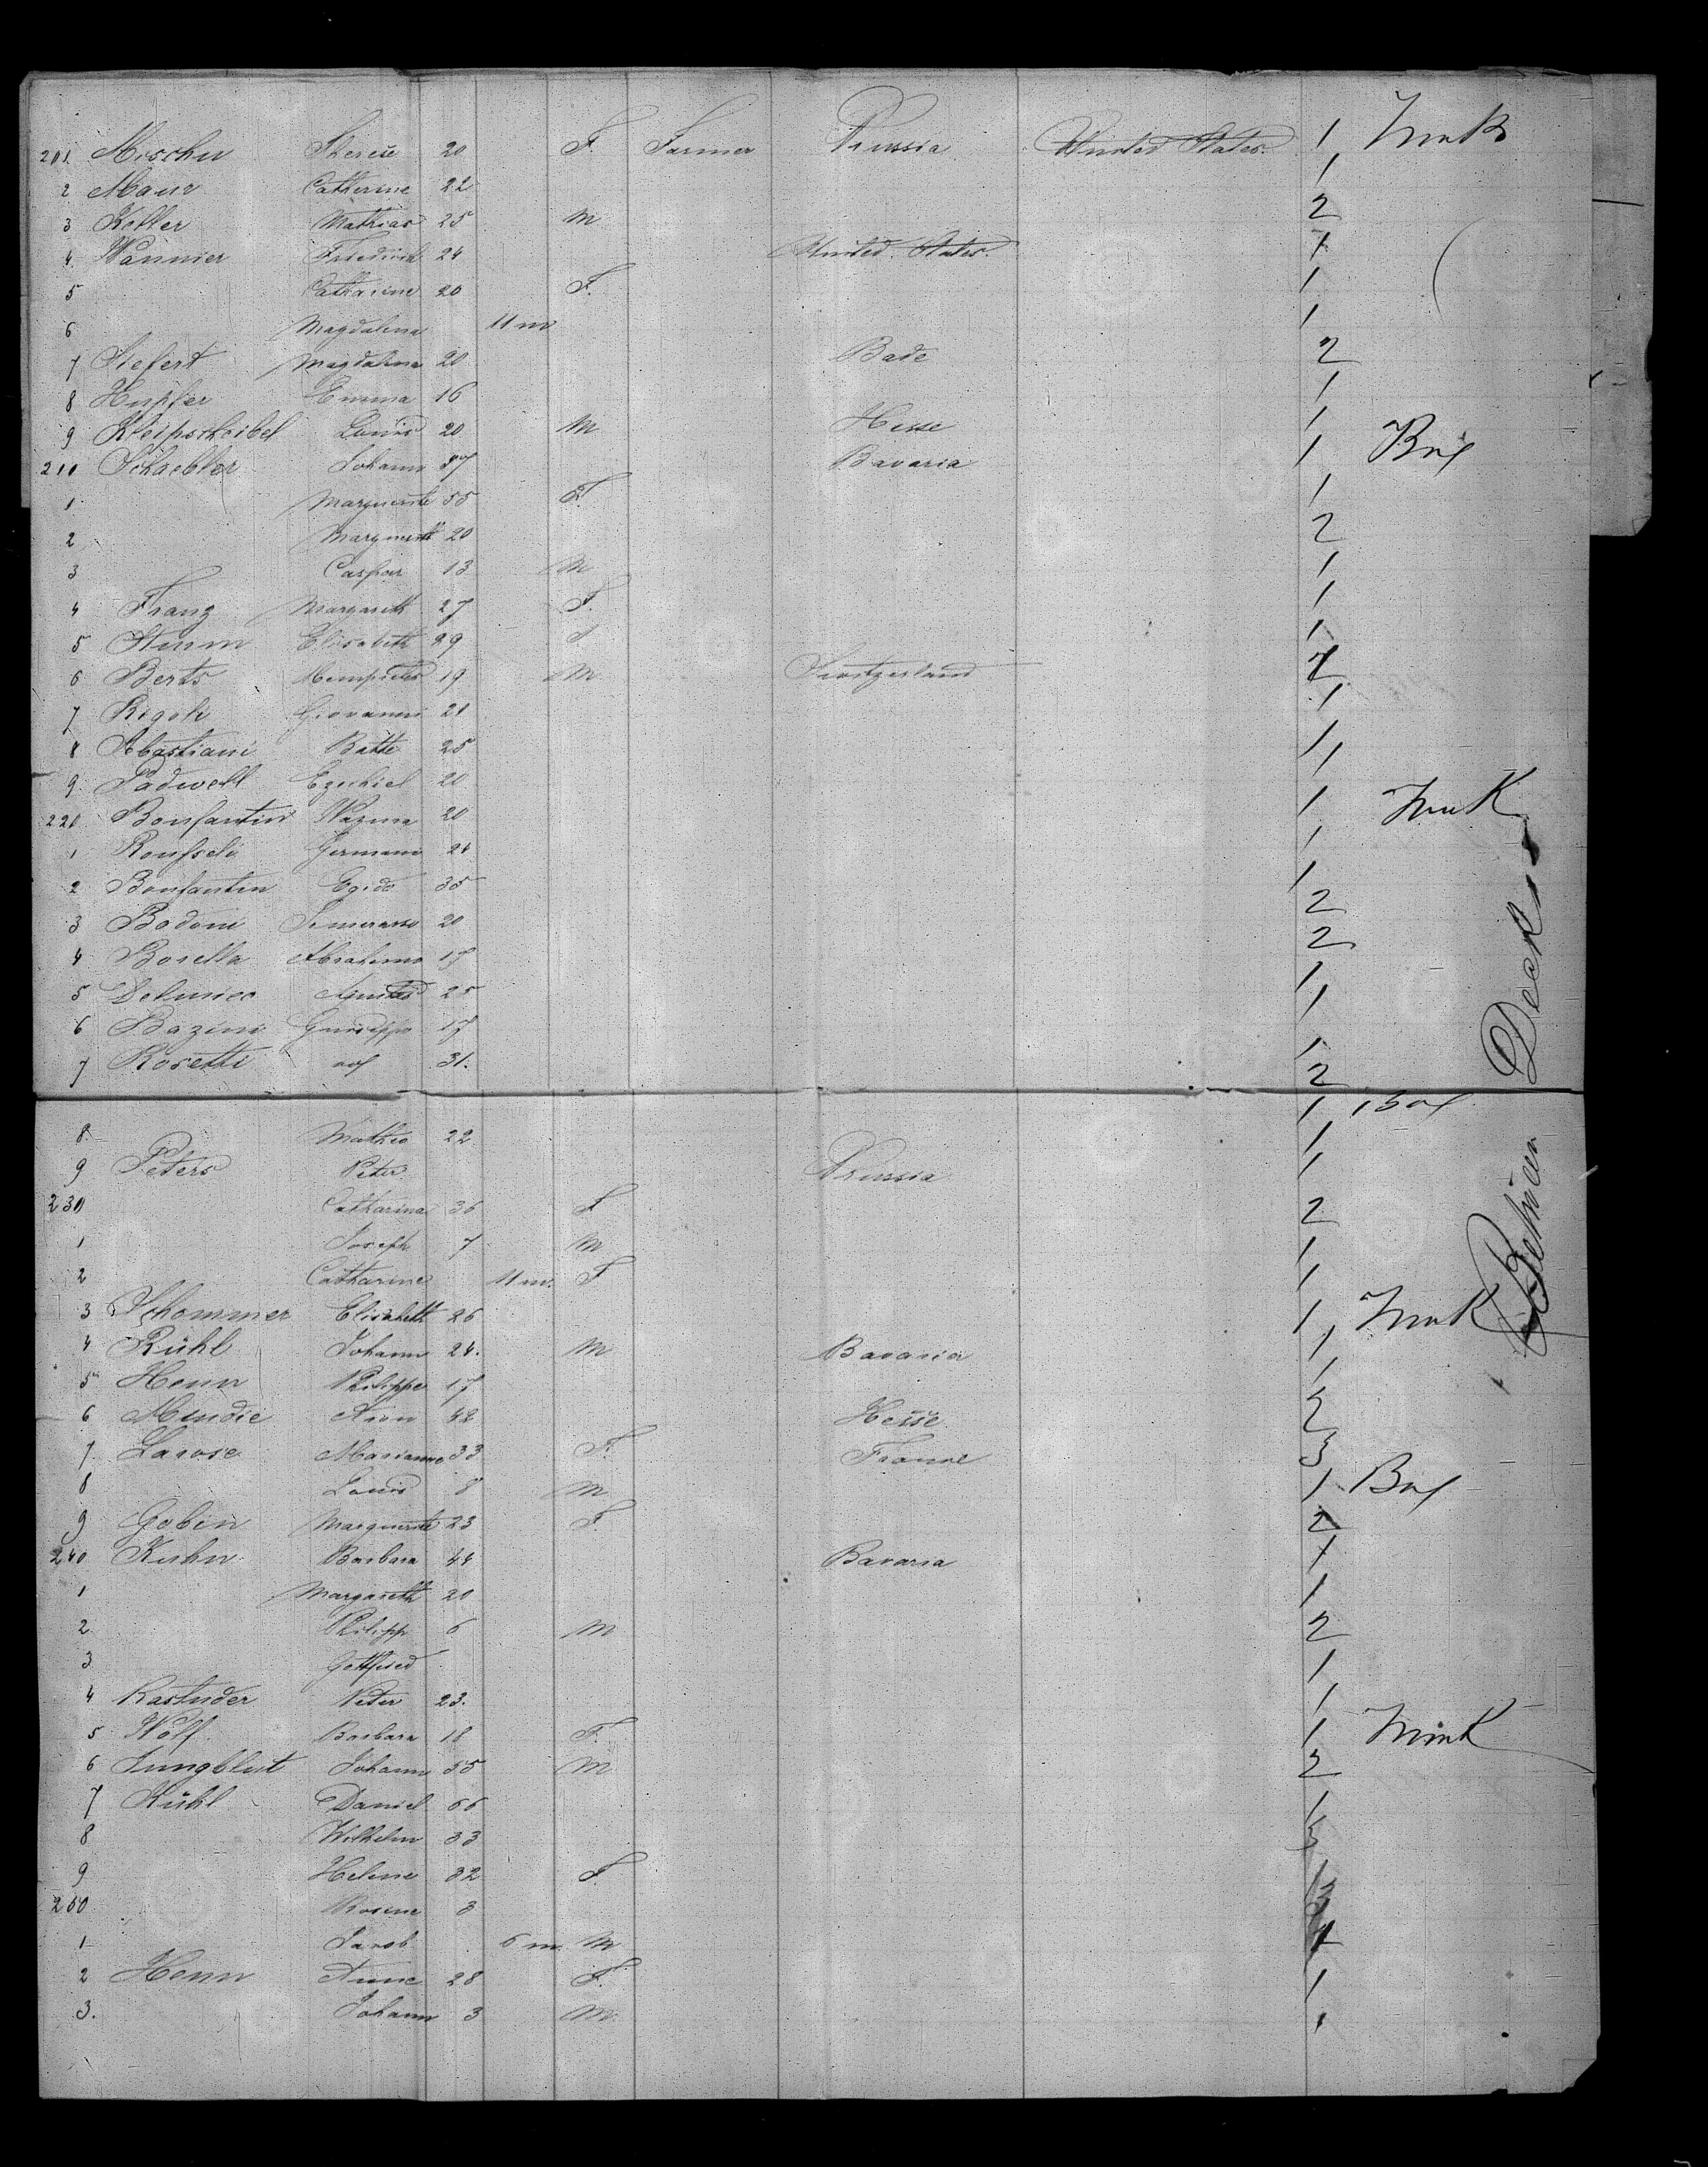 201. Mischu Therese 20 F. Farmer Prussia United States. 1 Trunk
2 Maur Catherine 22 1
3 Keller Mathias 25 M 2
4. Wannier Friedrich 24 United States. 1
5 Catharine 20 F. 1
6 Magdalena 11 m 1
7 Siefert Magdalena 20 Bade 2
8 Hupfer Emma 16 1
9 Louis 20 M Hesse 1
210 Schaebler Johann 57 Bavaria 1 Box
1 Marguerite 55 F. 1
2 Marguerite 20 2
3 Caspar 13 M 1
4 Franz Margareth 27 F. 1
5 Sturm Elisabeth 29 1
6 Berts 19 M Switzerland 2
7 Rigoli Giovanni 21 1
8 Sebastiani Batte 25 1
9. Padwell Ezechiel 20 1
220 Bonfantin 20 1 Trunk
1 Germano 24 1
2 Bonfantin Egido 35 1
3 Bodoni 20 2
4 Borella Abrahamo 17 2
5 25 1
6 Bazini Guiseppe 17 1
7 Rosetti 31. 2
Deck
8. Matheo 22 1 Box
9 Peters Peter Prussia 1
230 Catharina 36 F 2
1 Joseph 7 M 1
2 Catharine 11 m. F 1
3 Schommer Elisabeth 26 1 Trunk
Between
4 Rühl Johann 24. M Bavaria 1
5 Henn Philippe 17 1
6 Mundie Aron 42 Hesse 2
7. Larose Marianne 33 F. France 3
8 Louis 8 M 1 Box
9 Gobin Marguerite 23 F. 2
240 Kuhn Barbara 44 Bavaria 1
1 Margareth 20 1
2. Philipp 6 M 2
3 Gottfried 1
4 Kasluder Peter 23. 1
5 Wolf Barbara 18 F. 1 Trunk
6 Jungblut Johann 35 M 2
7 Kühl Daniel 66 1
8 Wilhelm 33 3
9 Helene 32 F
250 Rosine 3
1 Jacob 6 m. M 1
2 Henn Anne 28 F. 1
3. Johann 3 M. 1